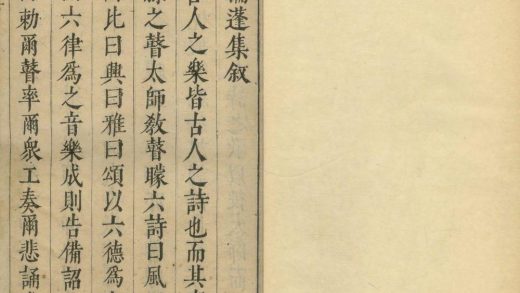 蓬集叙
古人之樂皆古人之詩也而其
之瞽太師敎瞽矇六詩曰風
比曰興曰雅曰頌以六德爲
六律爲之音樂成則告備詔
勅爾瞽率爾衆工奏爾悲誦